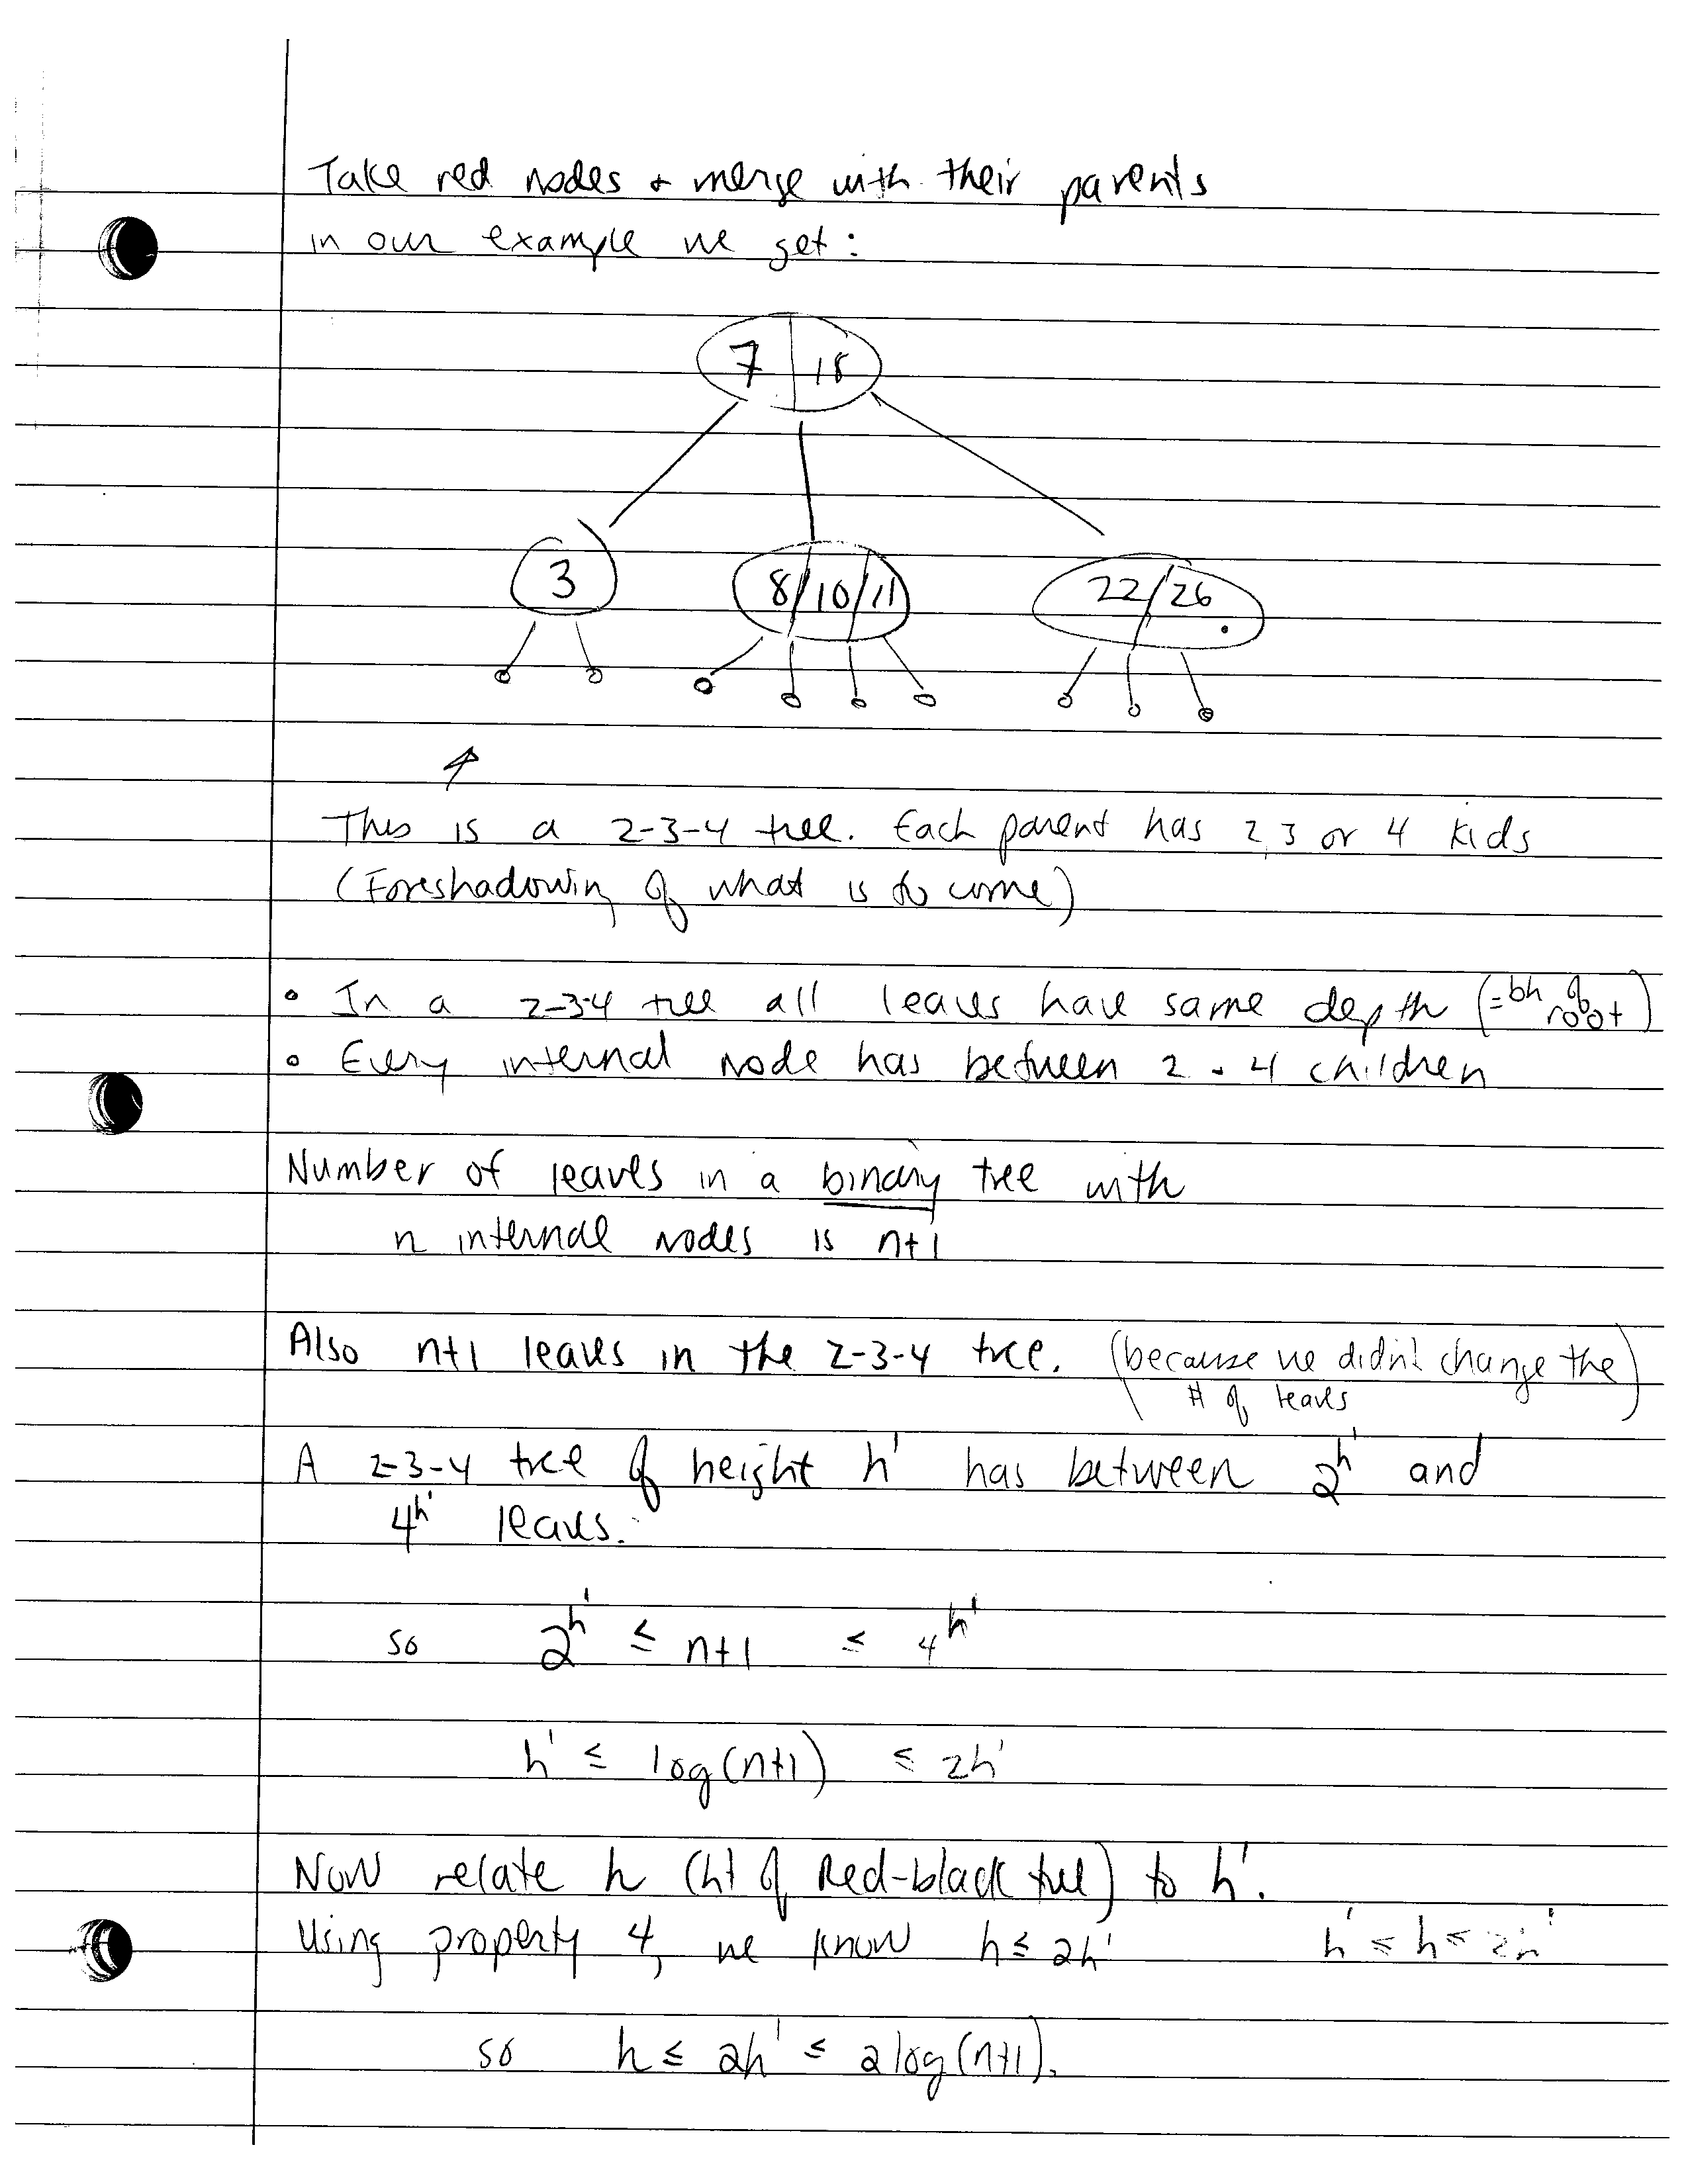 Take red nodes + merge with their parents
in our example we get:
7 | 18
3
8/10/11
22/26
This is a 2-3-4 tree. Each parent has 2,3 or 4 kids
(Foreshadowing of what is to come)
• In a 2-3-4 tree all leaves have same depth (=bh of root)
• Every internal node has between 2 - 4 children
Number of leaves in a binary tree with
n internal nodes is n+1
Also n+1 leaves in the 2-3-4 tree. (because we didn't change the
# of leaves)
A 2-3-4 tree of height h' has between 2^h' and
4^h' leaves.
so 2^h' ≤ n+1 ≤ 4^h'
h' ≤ log(n+1) ≤ 2h'
Now relate h (ht of Red-black tree) to h'.
Using property 4, we know h ≤ 2h' h' ≤ h ≤ 2h'
so h ≤ 2h' ≤ 2log(n+1).